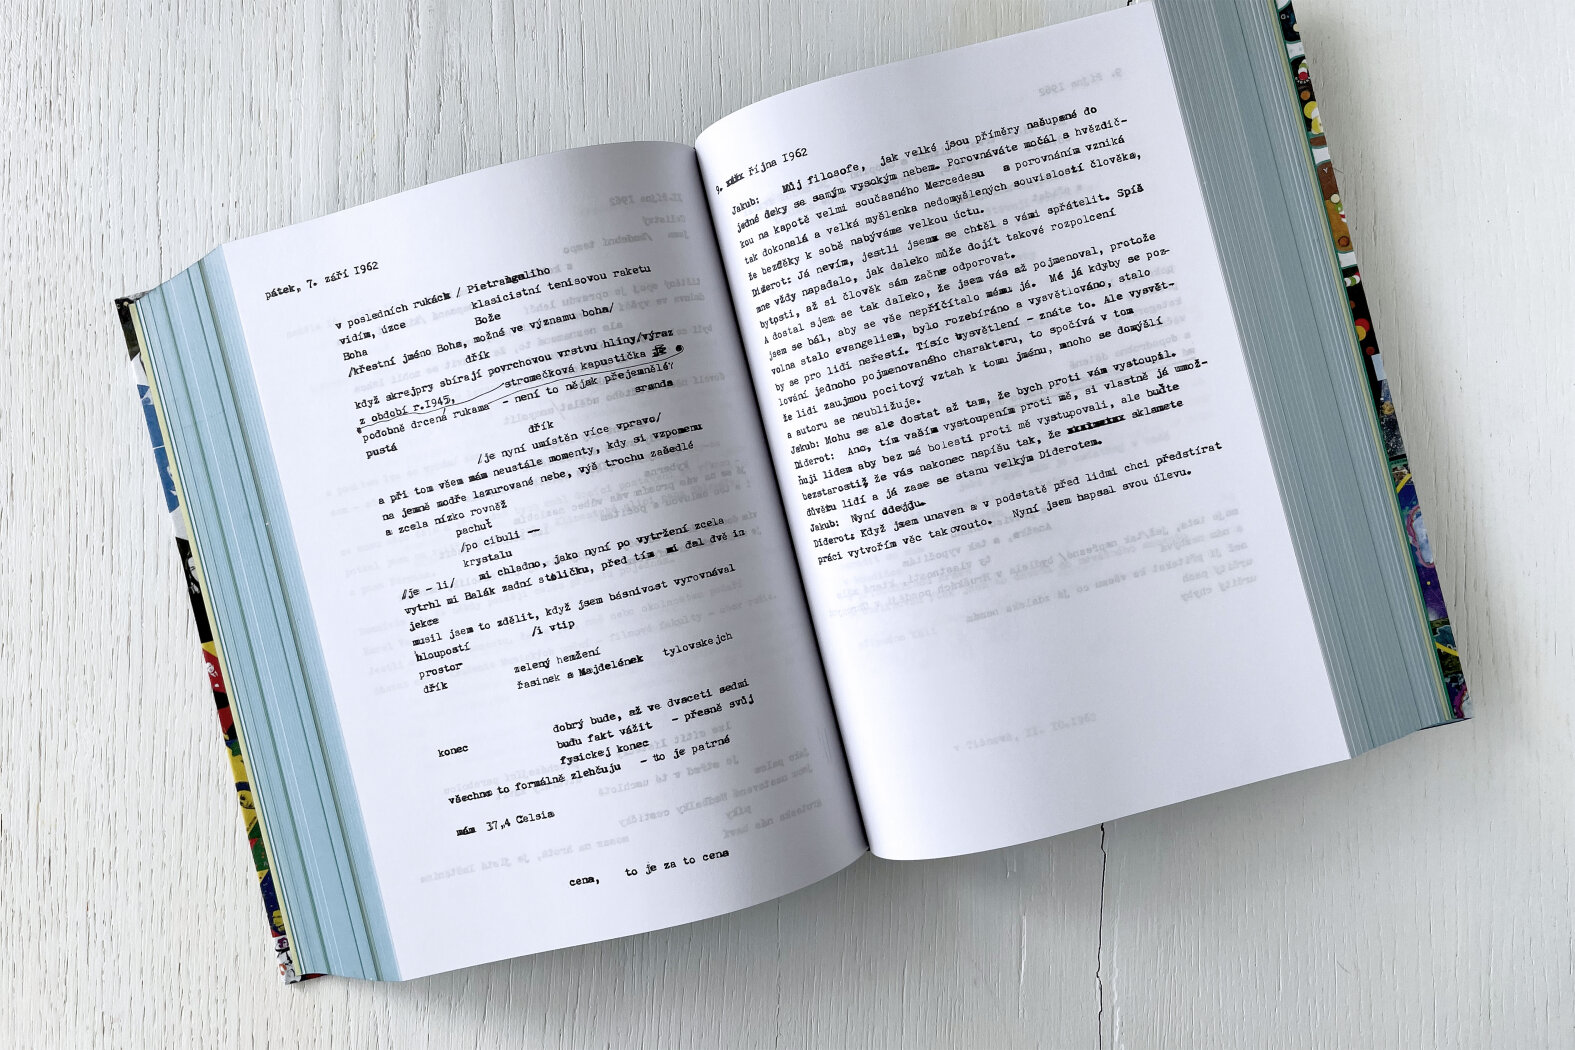 pátek, 7. září I962
v posledních rukách / Pietrangeliho
vidím, úzce klasicistní tenisovou raketu
Boha Bože
/křestní jméno Boha, možné ve významu boha/
dřík
když skrejpry sbírají povrchovou vrstvu hliny/výraz
z období r.I945, stromečková kapustička je
podobně drcená rukama - není to nějak přejemnělé?
pustá sranda
dřík
/je nyní umístěn více vpravo/
a při tom všem mám neustále momenty, kdy si vzpomenu
na jemně modře lazurované nebe, výš trochu zašedlé
a zcela nízko rovněž
pachuť
/po cibuli --
krystalu
/je - li/ mi chladno, jako nyní po vytržení zcela
vytrhl mi Balák zadní stoličku, před tím mi dal dvě in
jekce
musil jsem to zdělit, když jsem básnivost vyrovnával
hloupostí /i vtip
prostor zelený hemžení
dřík řasinek a Majdelének tylovskejch
dobrý bude, až ve dvaceti sedmi
konec budu fakt vážit - přesně svůj
fysickej konec
všechno to formálně zlehčuju - to je patrné
mám 37,4 Celsia
cena, to je za to cena
9. října I962
Jakub: Můj filosofe, jak velké jsou příměry našupané do
jedné deky se samým vysokým nebem. Porovnáváte močál s hvězdič-
kou na kapotě velmi současného Mercedesu a porovnáním vzniká
tak dokonalá a velká myšlenka nedomyšlených souvislostí člověka,
že bezděky k sobě nabýváme velkou úctu.
Diderot: Já nevím, jestli jsem se chtěl s vámi spřátelit. Spíš
mne vždy napadalo, jak daleko může dojít takové rozpolcení
bytosti, až si člověk sám začne odporovat.
A dostal sjem se tak daleko, že jsem vás až pojmenoval, protože
jsem se bál, aby se vše nepřičítalo mému já. Mé já kdyby se poz-
volna stalo evangeliem, bylo rozebíráno a vysvětlováno, stalo
by se pro lidi neřestí. Tisíc vysvětlení - znáte to. Ale vysvět-
lování jednoho pojmenovaného charakteru, to spočívá v tom
že lidi zaujmou pocitový vztah k tomu jménu, mnoho se domýšlí
a autoru se neubližuje.
Jakub: Mohu se ale dostat až tam, že bych proti vám vystoupil.
Diderot: Ano, tím vaším vystoupením proti mě, si vlastně já umož-
ňuji lidem aby bez mé bolesti proti mě vystupovali, ale buďte
bezstarostiž že vás nakonec napíšu tak, že sklamete
důvěru lidí a já zase se stanu velkým Diderotem.
Jakub: Nyní odejdu.
Diderot: Když jsem unaven a v podstatě před lidmi chci předstírat
práci vytvořím věc takovouto. Nyní jsem napsal svou úlevu.